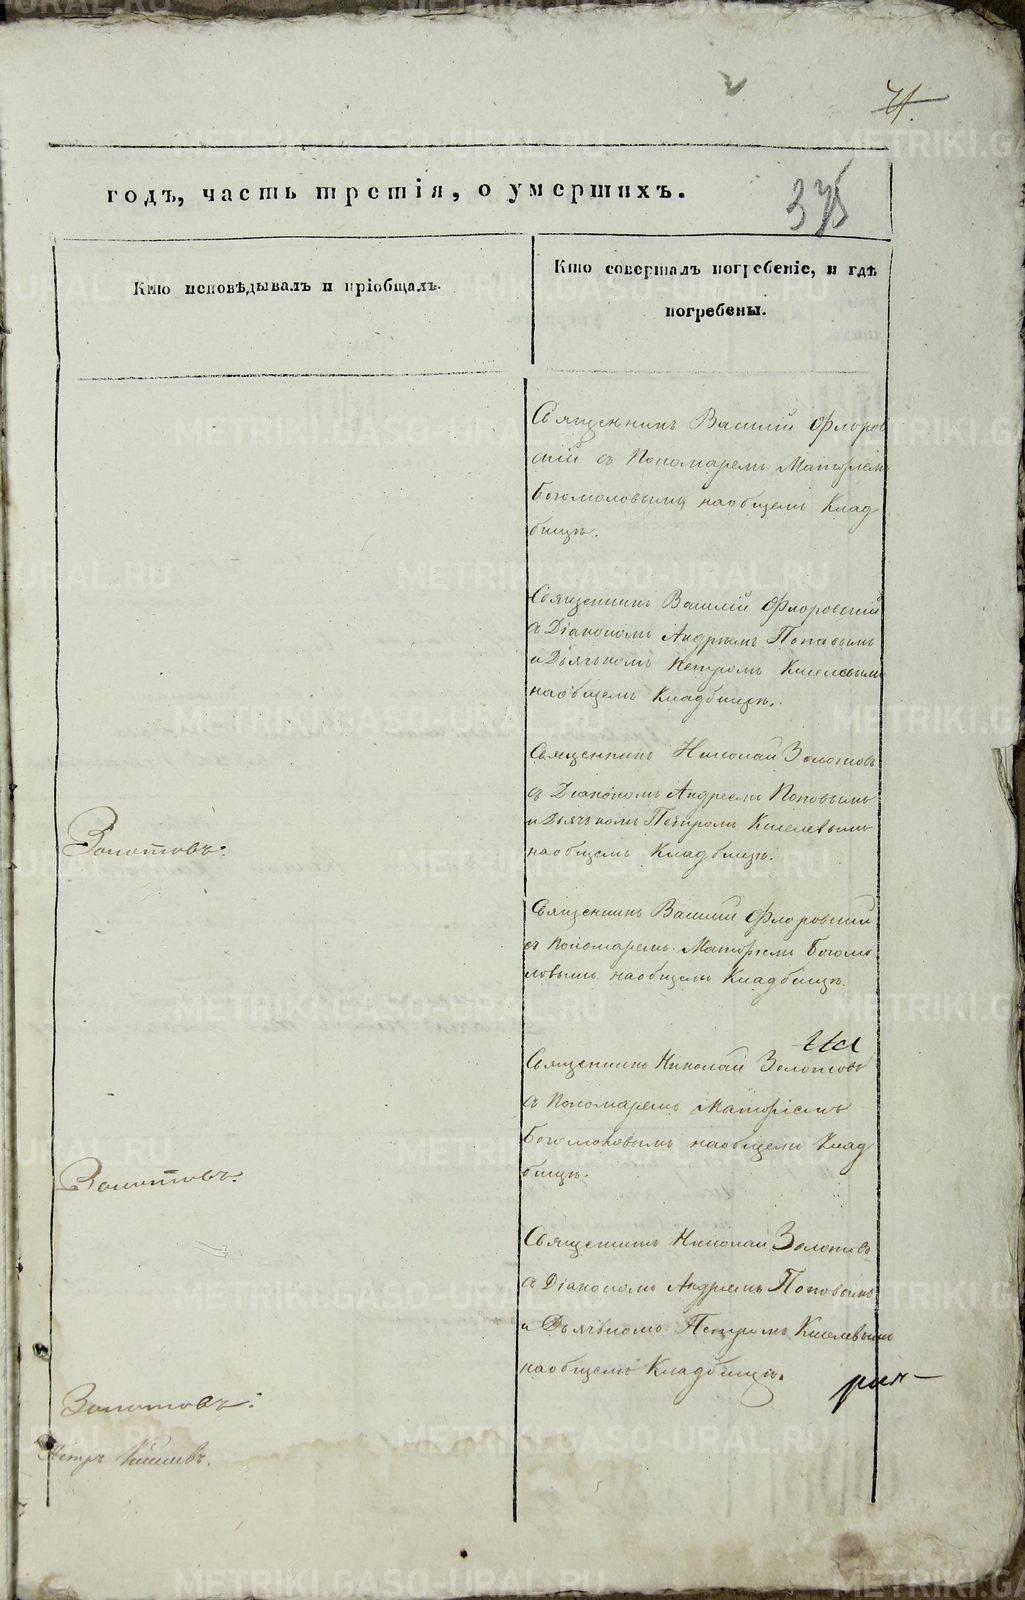 годъ, часть третія, о умершихъ.
375
Кто исповѣдывалъ и пріобщалъ.
Кто совершалъ погребеніе, и гдѣ
погребены.
Священникъ Василій Флоров
скій съ Пономаремъ Матѳіемъ
Богомоловымъ наобщемъ Клад
бищѣ.
Священникъ Василій Флоровскій
съ Діакономъ Андреемъ Поповымъ
и Дьячькомъ Петромъ Киселевымъ
наобщемъ Кладбищѣ.
Священникъ Николай Золотовъ
съ Діакономъ Андреемъ Поповымъ
и Дьячькомъ Петромъ Киселевымъ
наобщемъ Кладбищѣ.
Золотовъ.
Священникъ Василій Флоровскій
съ Пономаремъ Матѳіемъ Богомо
ловымъ наобщемъ Кладбищѣ.
Священникъ Николай Золотовъ
съ Пономаремъ Матѳіемъ
Богомоловымъ наобщемъ Клад
бищѣ.
Золотовъ.
Священникъ Николай Золотовъ
съ Діакономъ Андреемъ Поповымъ
и Дьячькомъ Петромъ Киселевымъ
наобщемъ Кладбищѣ.
Золотовъ.
Петръ Киселевъ.
METRIKI.GASO-URAL.RU